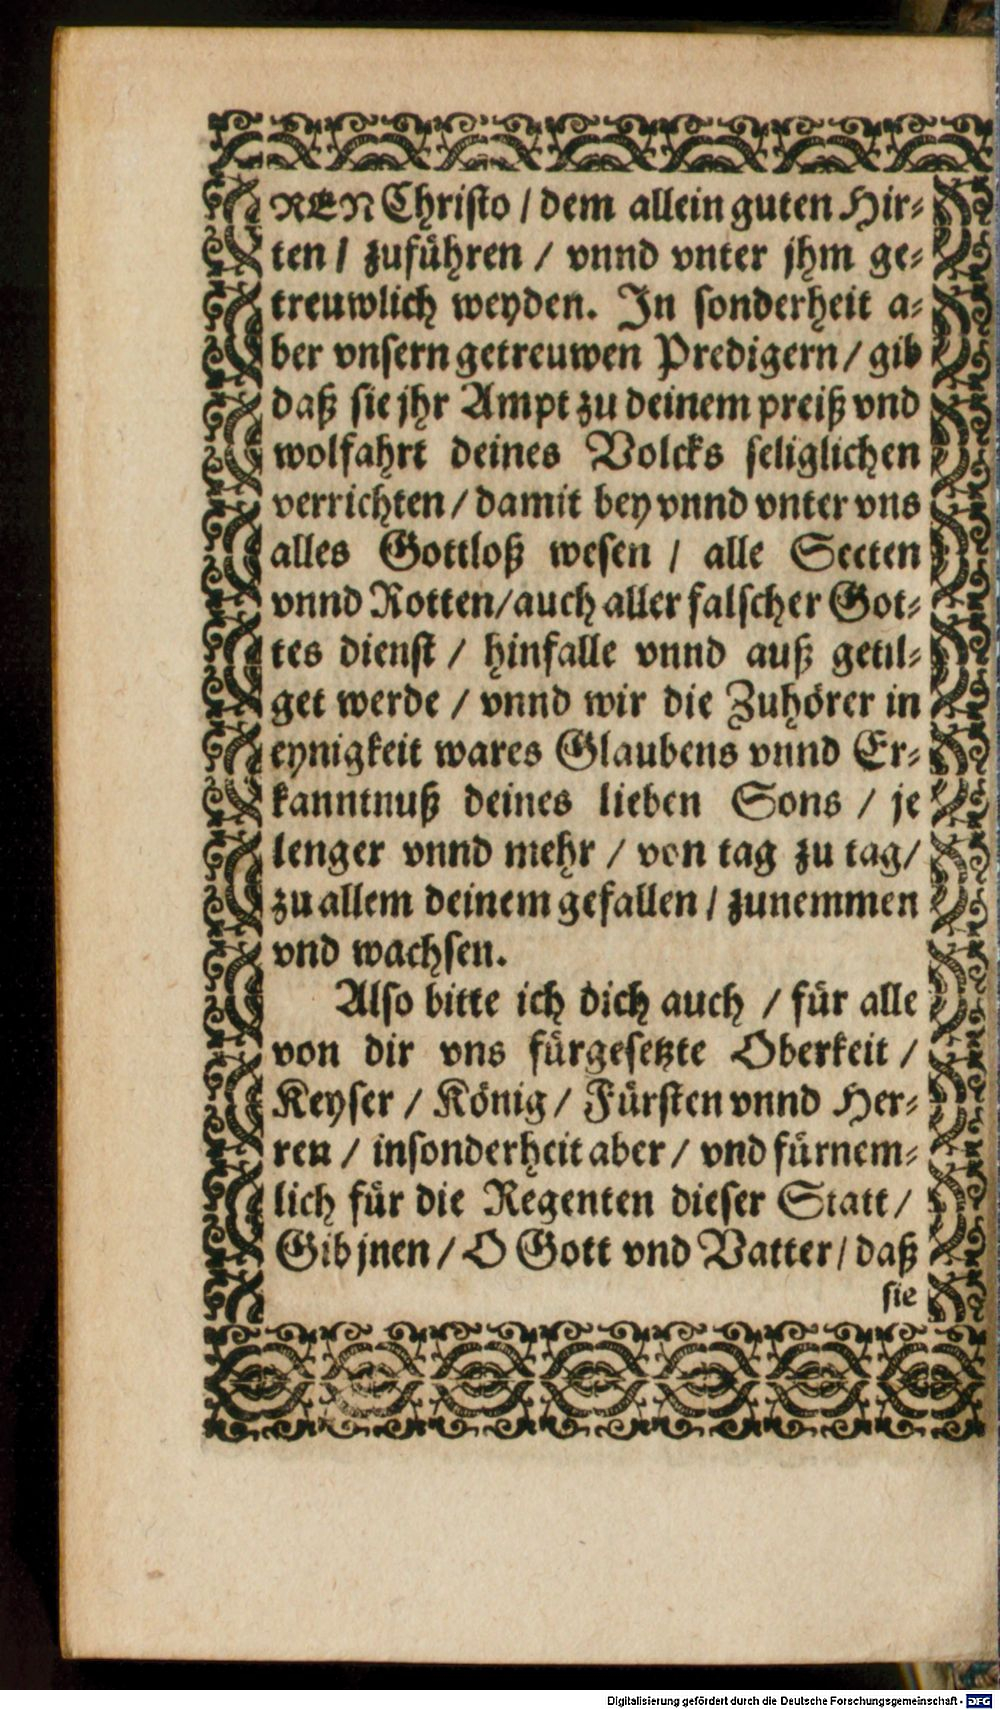 NEN Christo / dem allein guten Hir⸗
ten / zuführen / vnnd vnter jhm ge⸗
treuwlich weyden. In sonderheit a⸗
ber vnsern getreuwen Predigern / gib
daß sie jhr Ampt zu deinem preiß vnd
wolfahrt deines Volcks seliglichen
verrichten / damit bey vnnd vnter vns
alles Gottloß wesen / alle Secten
vnnd Rotten / auch aller falscher Got⸗
tes dienst / hinfalle vnnd auß getil⸗
get werde / vnnd wir die Zuhörer in
eynigkeit wares Glaubens vnnd Er⸗
kanntnuß deines lieben Sons / je
lenger vnnd mehr / von tag zu tag /
zu allem deinem gefallen / zunemmen
vnd wachsen.
Also bitte ich dich auch / für alle
von dir vns fürgesetzte Oberkeit /
Keyser / König / Fürsten vnnd Her⸗
ren / insonderheit aber / vnd fürnem⸗
lich für die Regenten dieser Statt /
Gib jnen / O Gott vnd Vatter / daß
sie
Digitalisierung gefördert durch die Deutsche Forschungsgemeinschaft - DFG